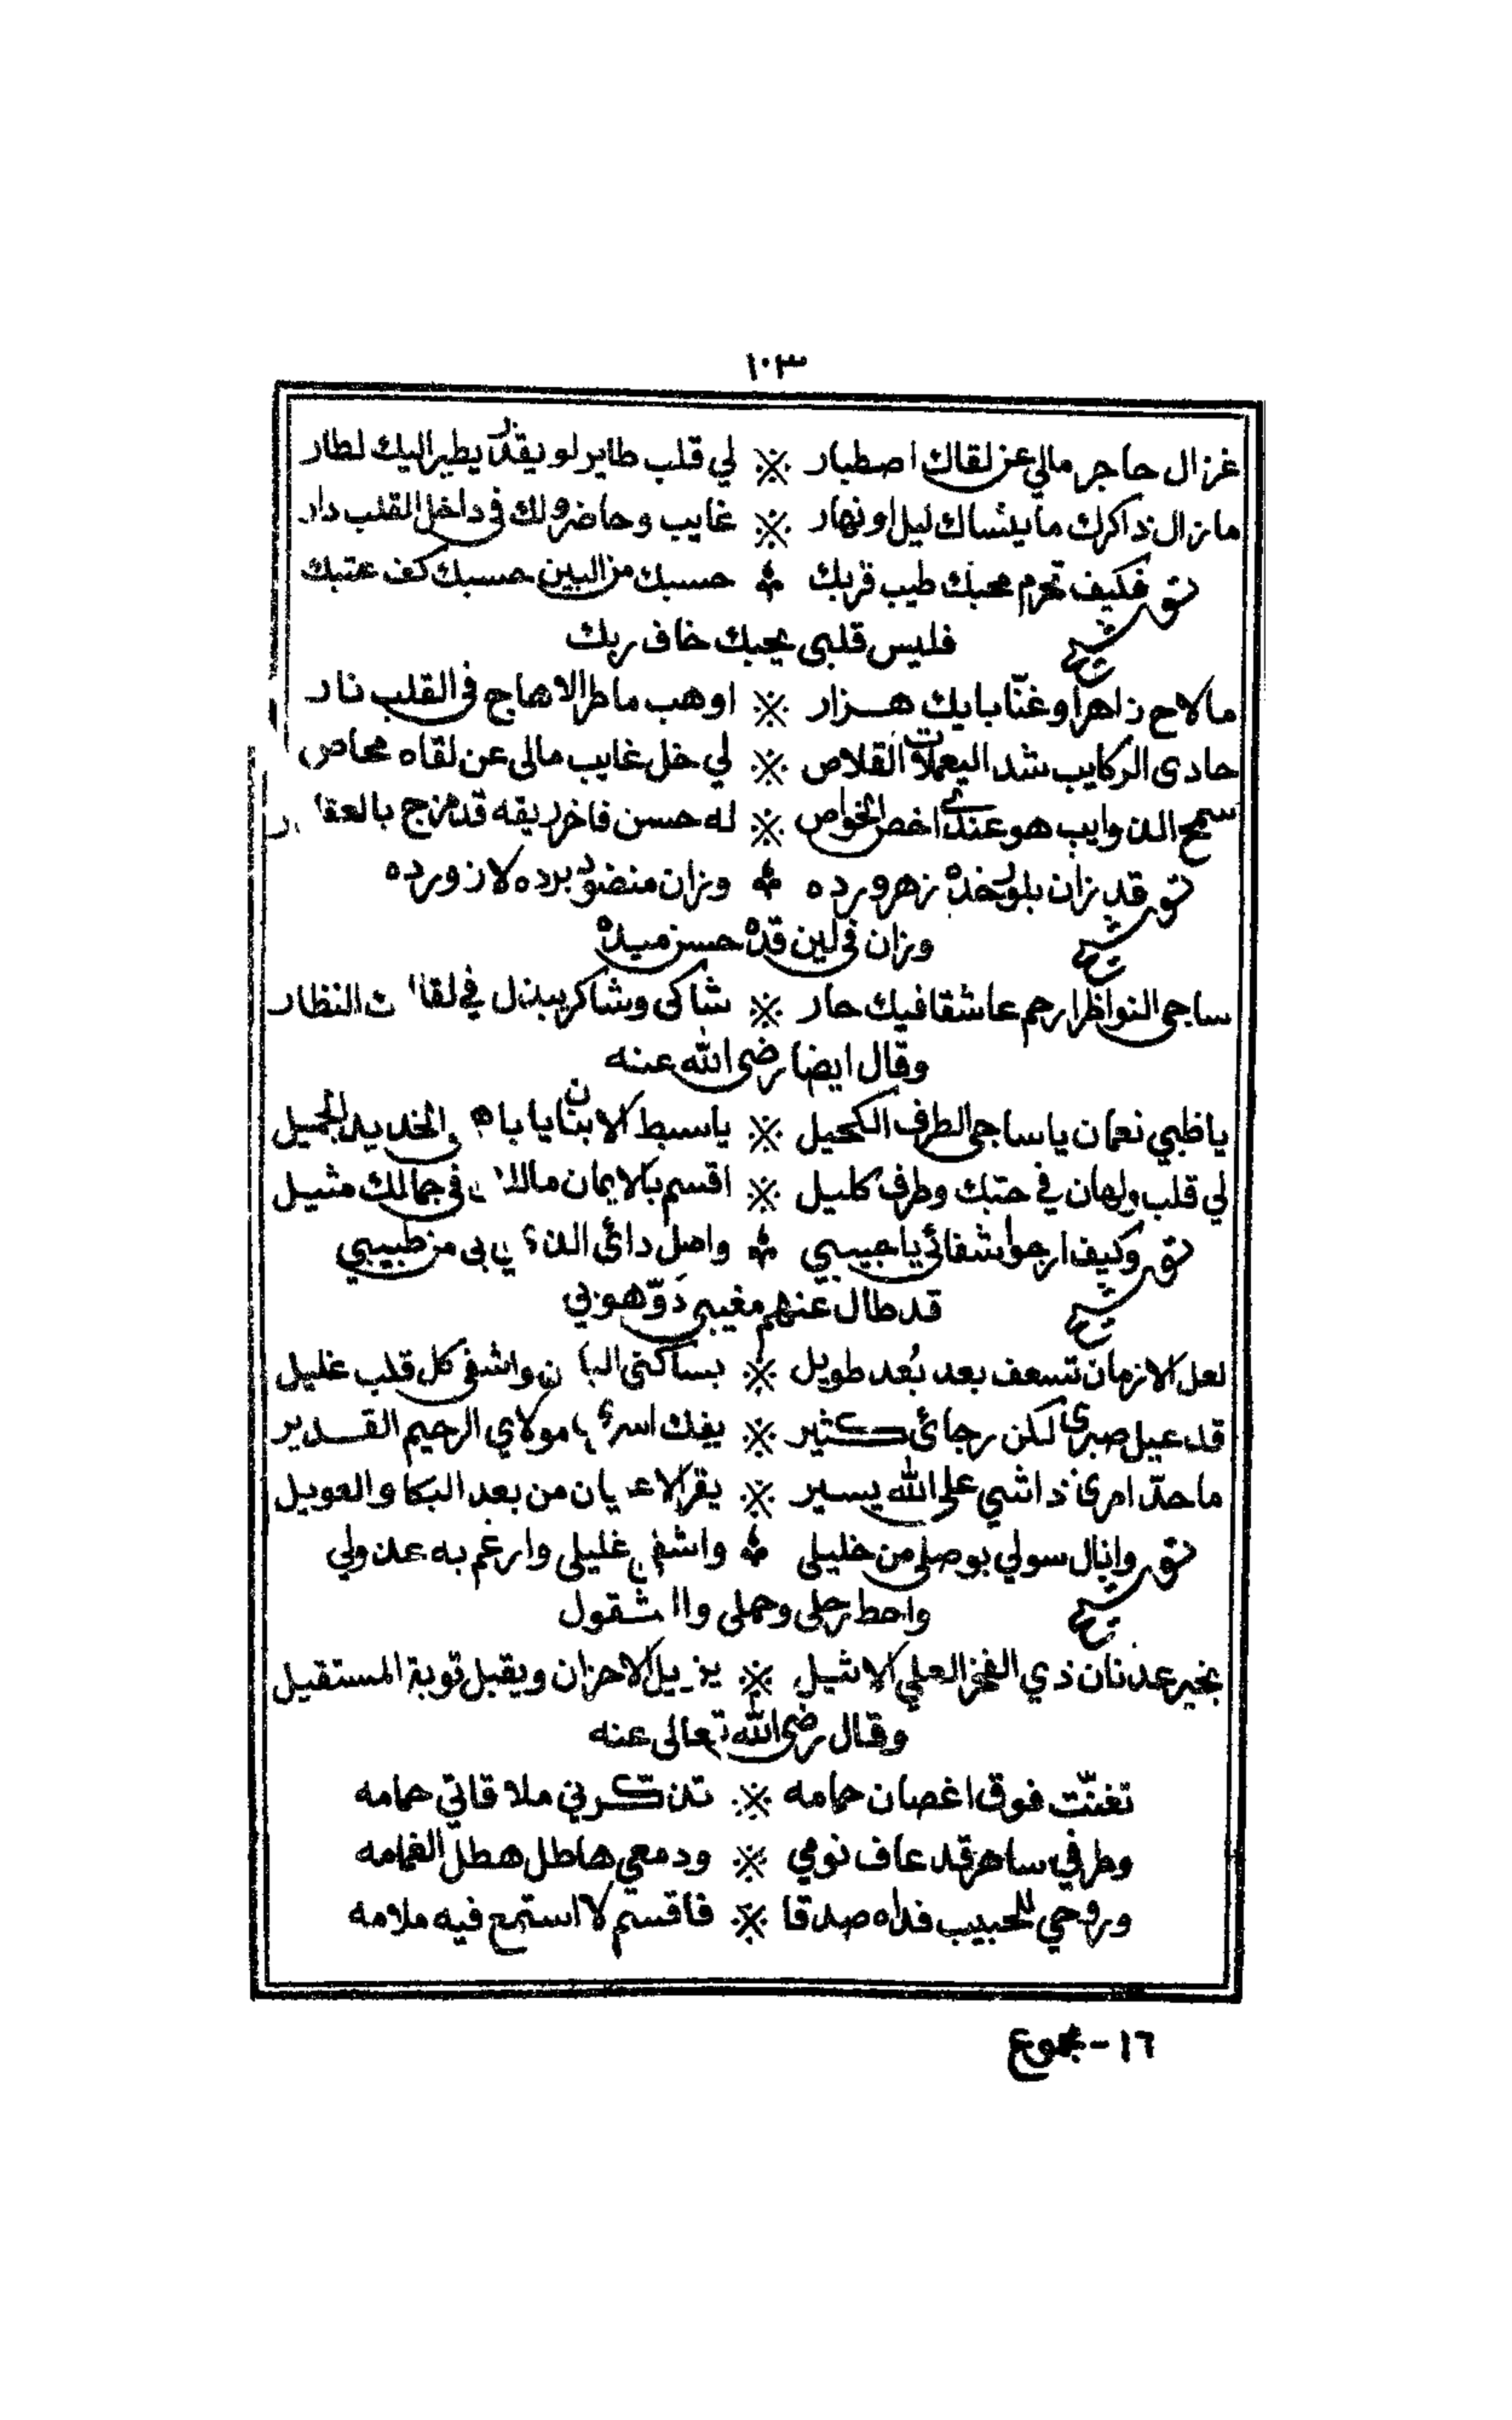 ١٠٣
غزال حاجر مالي عن لقاك اصطبار ※ لي قلب طاير لو يقدر يطير اليك لطار
مازال ذاكرك ما ينساك ليل او نهار ※ غايب وحاضر ولك في داخل القلب دار
توشيح فكيف تحرم محبك طيب قربك ※ حسبك من البين حسبك كف عتبك
فليس قلبي يحبك خاف ربك
مالاح زاهر او غنّا بايك هزار ※ اوهب ماطر الا هاج في القلب نار
حادى الركايب شد اليعملات القلاص ※ لي خل غايب مالى عن لقاه محاص
سمح الذوايب هو عندي اخص الخواص ※ له حسن فاخر ريقه قد مزج بالعقار
توشيح قد زان بلور خده زهر ورده ※ وزان منضود برده لازورده
وزان في لين قده حسن ميده
ساجى النواظر ارحم عاشقا فيك حار ※ شاكى وشاكر يبذل في لقاك النظار
وقال ايضا رضى الله عنه
يا ظبي نعمان يا ساجى الطرف الكحيل ※ يا سبط الابنان يا باهي الخديد الجميل
لي قلب ولهان في حبّك وطرف كليل ※ اقسم بالايمان مالك في جمالك مثيل
توشيح وكيف ارجوا شفائي يا حبيبي ※ واصل دائى الذي بى من طبيبي
قد طال عنهم مغيبي دوّهوبي
لعل الازمان تسعف بعد بُعد طويل ※ بساكنى البان واشفى كل قلب غليل
قد عيل صبرى لكن رجائى كثير ※ يفك اسرى يا مولاي الرحيم القدير
ما حدّ امرئ ذا شي على الله يسير ※ يقر الاعيان من بعد البكا والعويل
توشيح وانال سولي بوصلى من خليلى ※ واشفى غليلى وارغم به عذولي
واحط رحلى وحملى والشقول
بخير عدنان ذي الفخر العلي الاثيل ※ يزيل الاحزان ويقبل توبة المستقيل
وقال رضى الله تعالى عنه
تغنّت فوق اغصان حمامه ※ تذكّرني ملاقاتي حمامه
وطرفي ساهر قد عاف نومي ※ ودمعي هاطل هطل الغمامه
وروحي للحبيب فداه صدقا ※ فاقسم لا استمع فيه ملامه
١٦ - مجموع